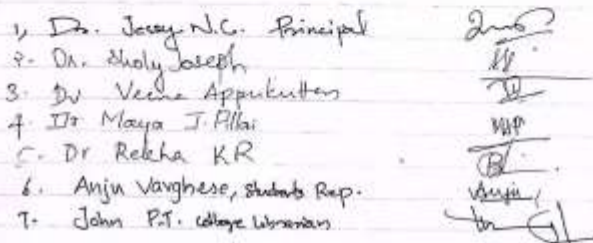 1, Dr. Jossy N.C. Principal
2. Dr. Sholy Joseph
3. Dr Veena Appukuttan
4. Dr Maya J. Pillai
5. Dr Rekha KR
6. Anju Varghese, Students Rep. Anju
7. John P.T. College Librarian